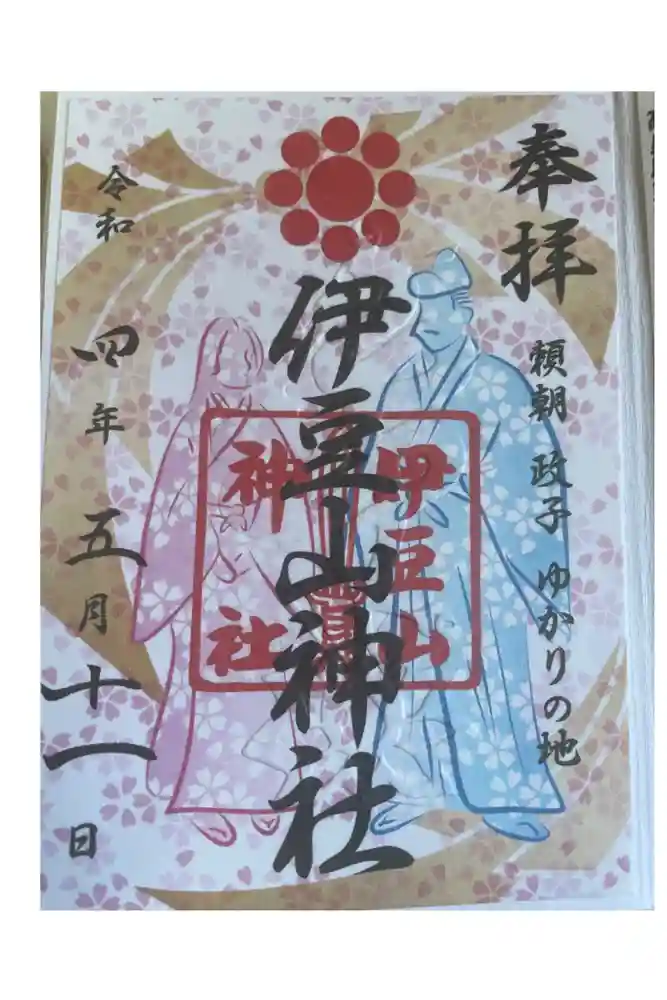 奉拝
頼朝 政子 ゆかりの地
伊豆山神社
伊豆山
神社
令和四年五月十一日